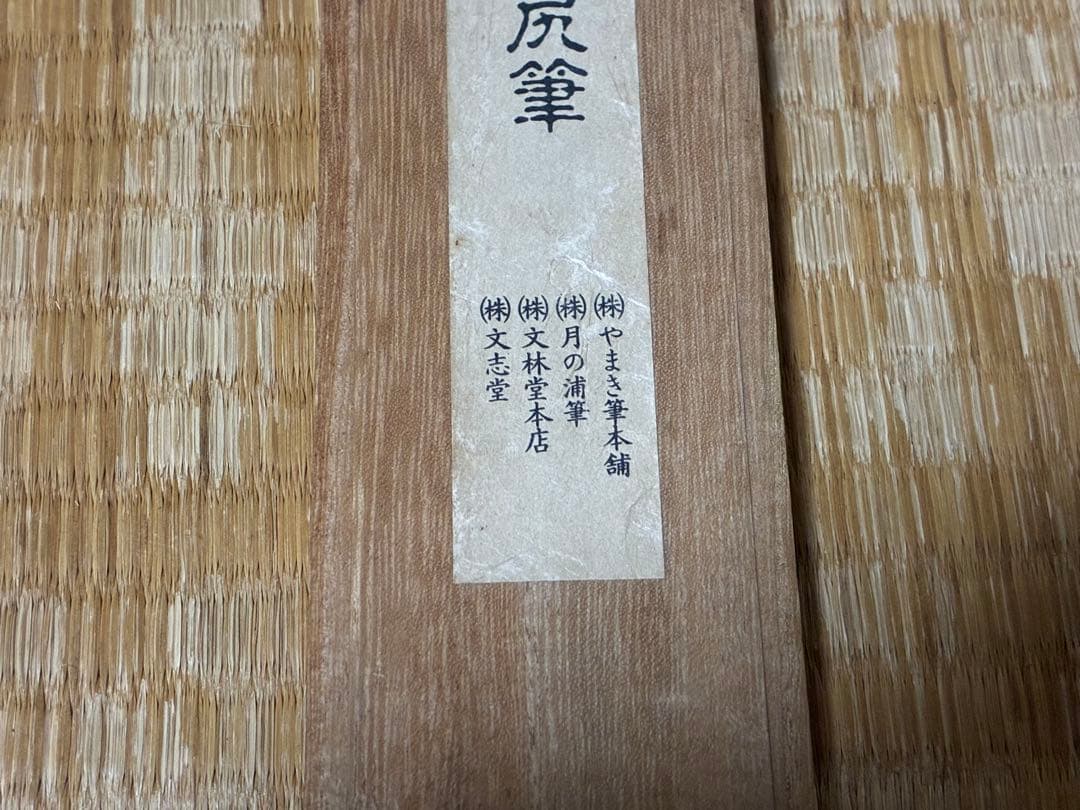 尻筆
㈱やまき筆本舗
㈱月の浦筆
㈱文林堂本店
㈱文志堂